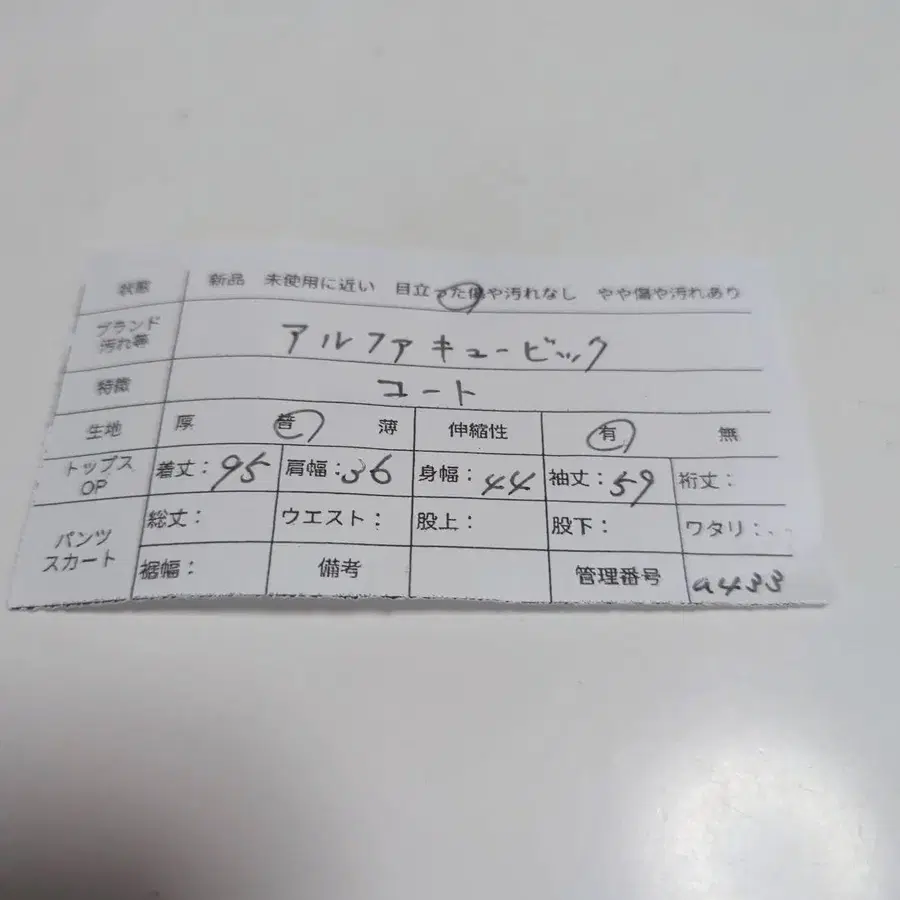 状態 新品 未使用に近い 目立った傷や汚れなし やや傷や汚れあり
ブランド
汚れ等
アルファキュービック
特徴 コート
生地 厚 普 薄 伸縮性 有 無
トップス
OP
着丈：95 肩幅：36 身幅：44 袖丈：59 裄丈：
パンツ
スカート
総丈： ウエスト： 股上： 股下： ワタリ：
裾幅： 備考 管理番号 a433